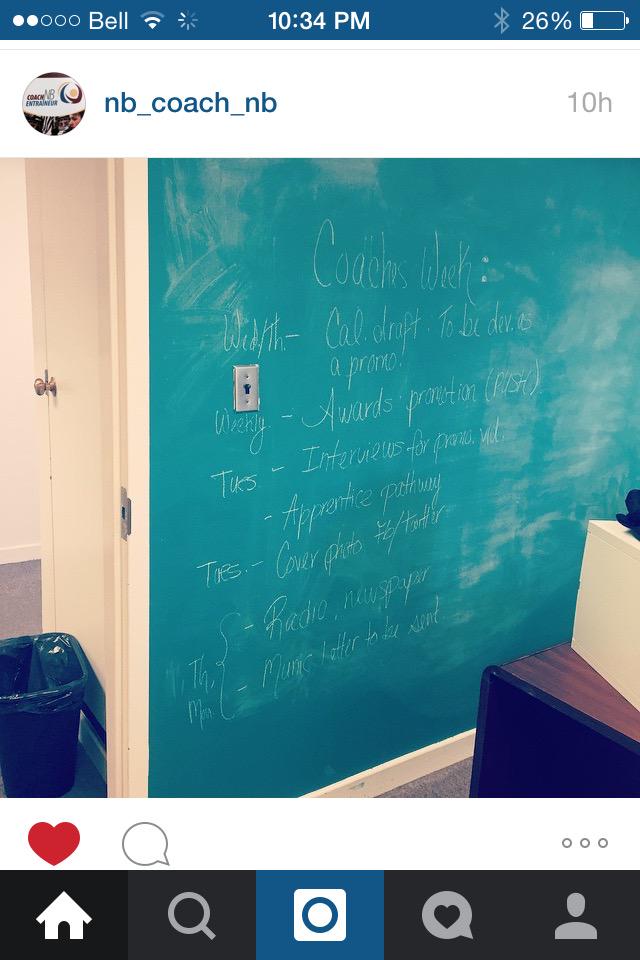 Bell 10:34 PM 26%
COACH NB
ENTRAÎNEUR
nb_coach_nb 10h
Coaches Week:
Wed/th. - Cal. draft. To be dev. as
a promo!
Weekly - Awards promotion
Tues - Interviews for promo. vid.
- Apprentice pathway
Tues. - Cover photo fb/twitter
- Radio, newspaper
Th,
Mon. - Munic letter to be sent